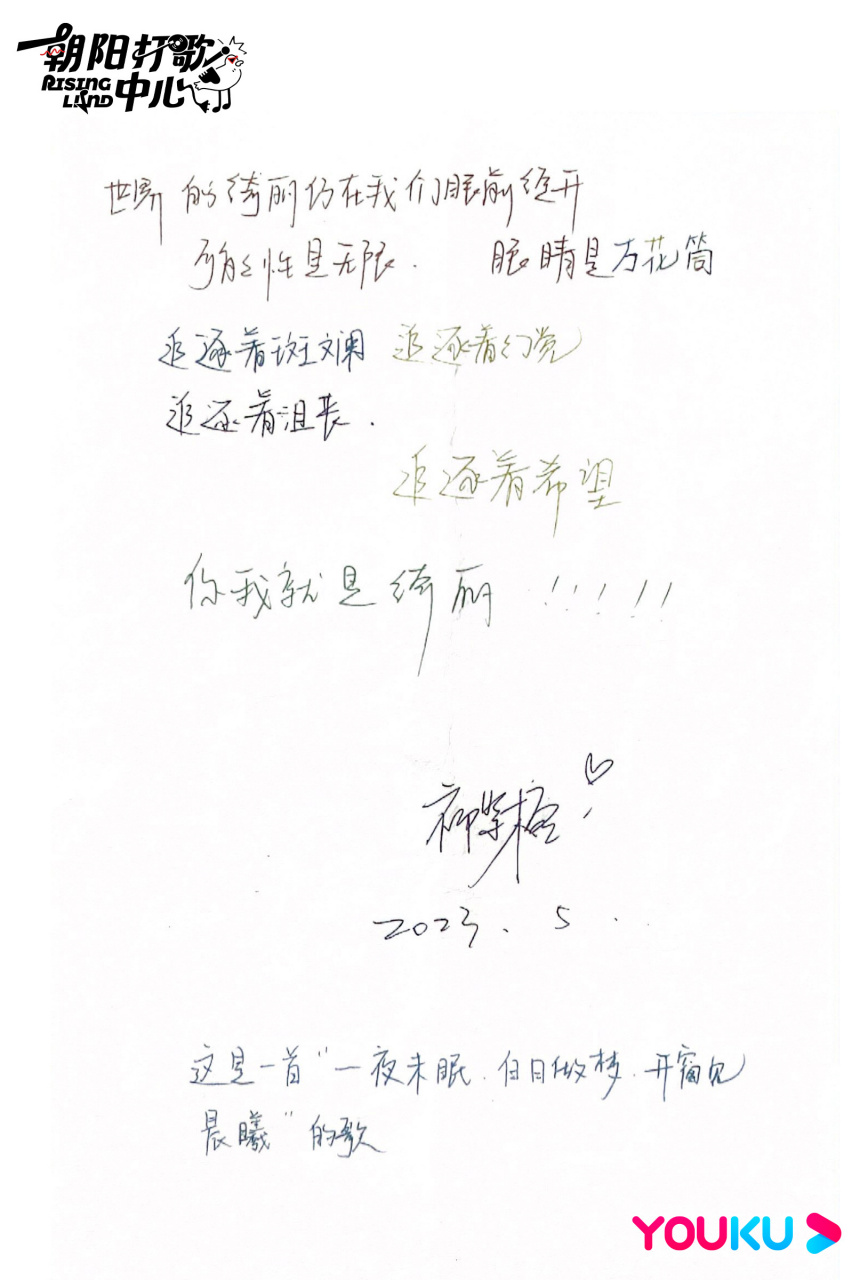 朝阳打歌
RISING
LAND 中心
世界的绮丽仍在我们眼前绽开
可能性是无限. 眼睛是万花筒
追逐着斑斓 追逐着幻觉
追逐着沮丧.
追逐着希望
你我就是绮丽!!!!!!
2023. 5.
这是一首"一夜未眠.白日做梦.开窗见
晨曦"的歌
YOUKU